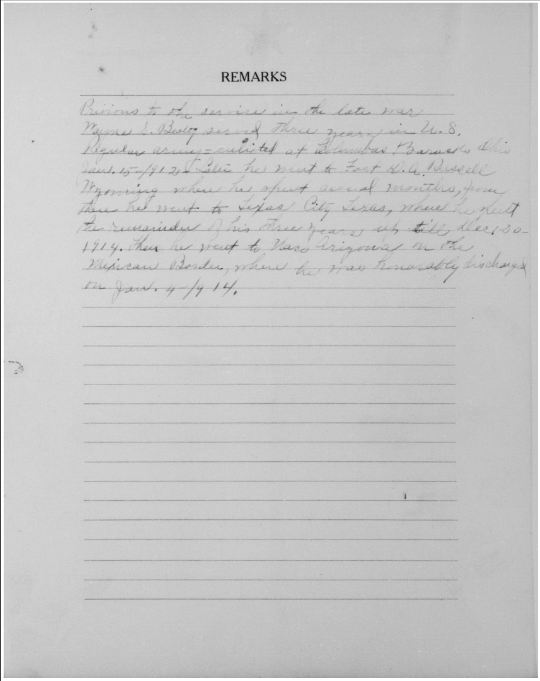 REMARKS
Privious to the service in the late war
Wayne L. served three years in U.S.
Regular army - enlisted at Columbus Baracks Ohio
Jan. 15 - 1912 Later he went to Fort D.A. Russell
Wyoming where he spent several months, from
there he went to Texas City Texas, where he spent
the remainder of his three years up till Dec. 20 -
1914. Then he went to Naco Arizona on the
Mexican Border, where he was honorably discharged
on Jan. 4 - 1914.